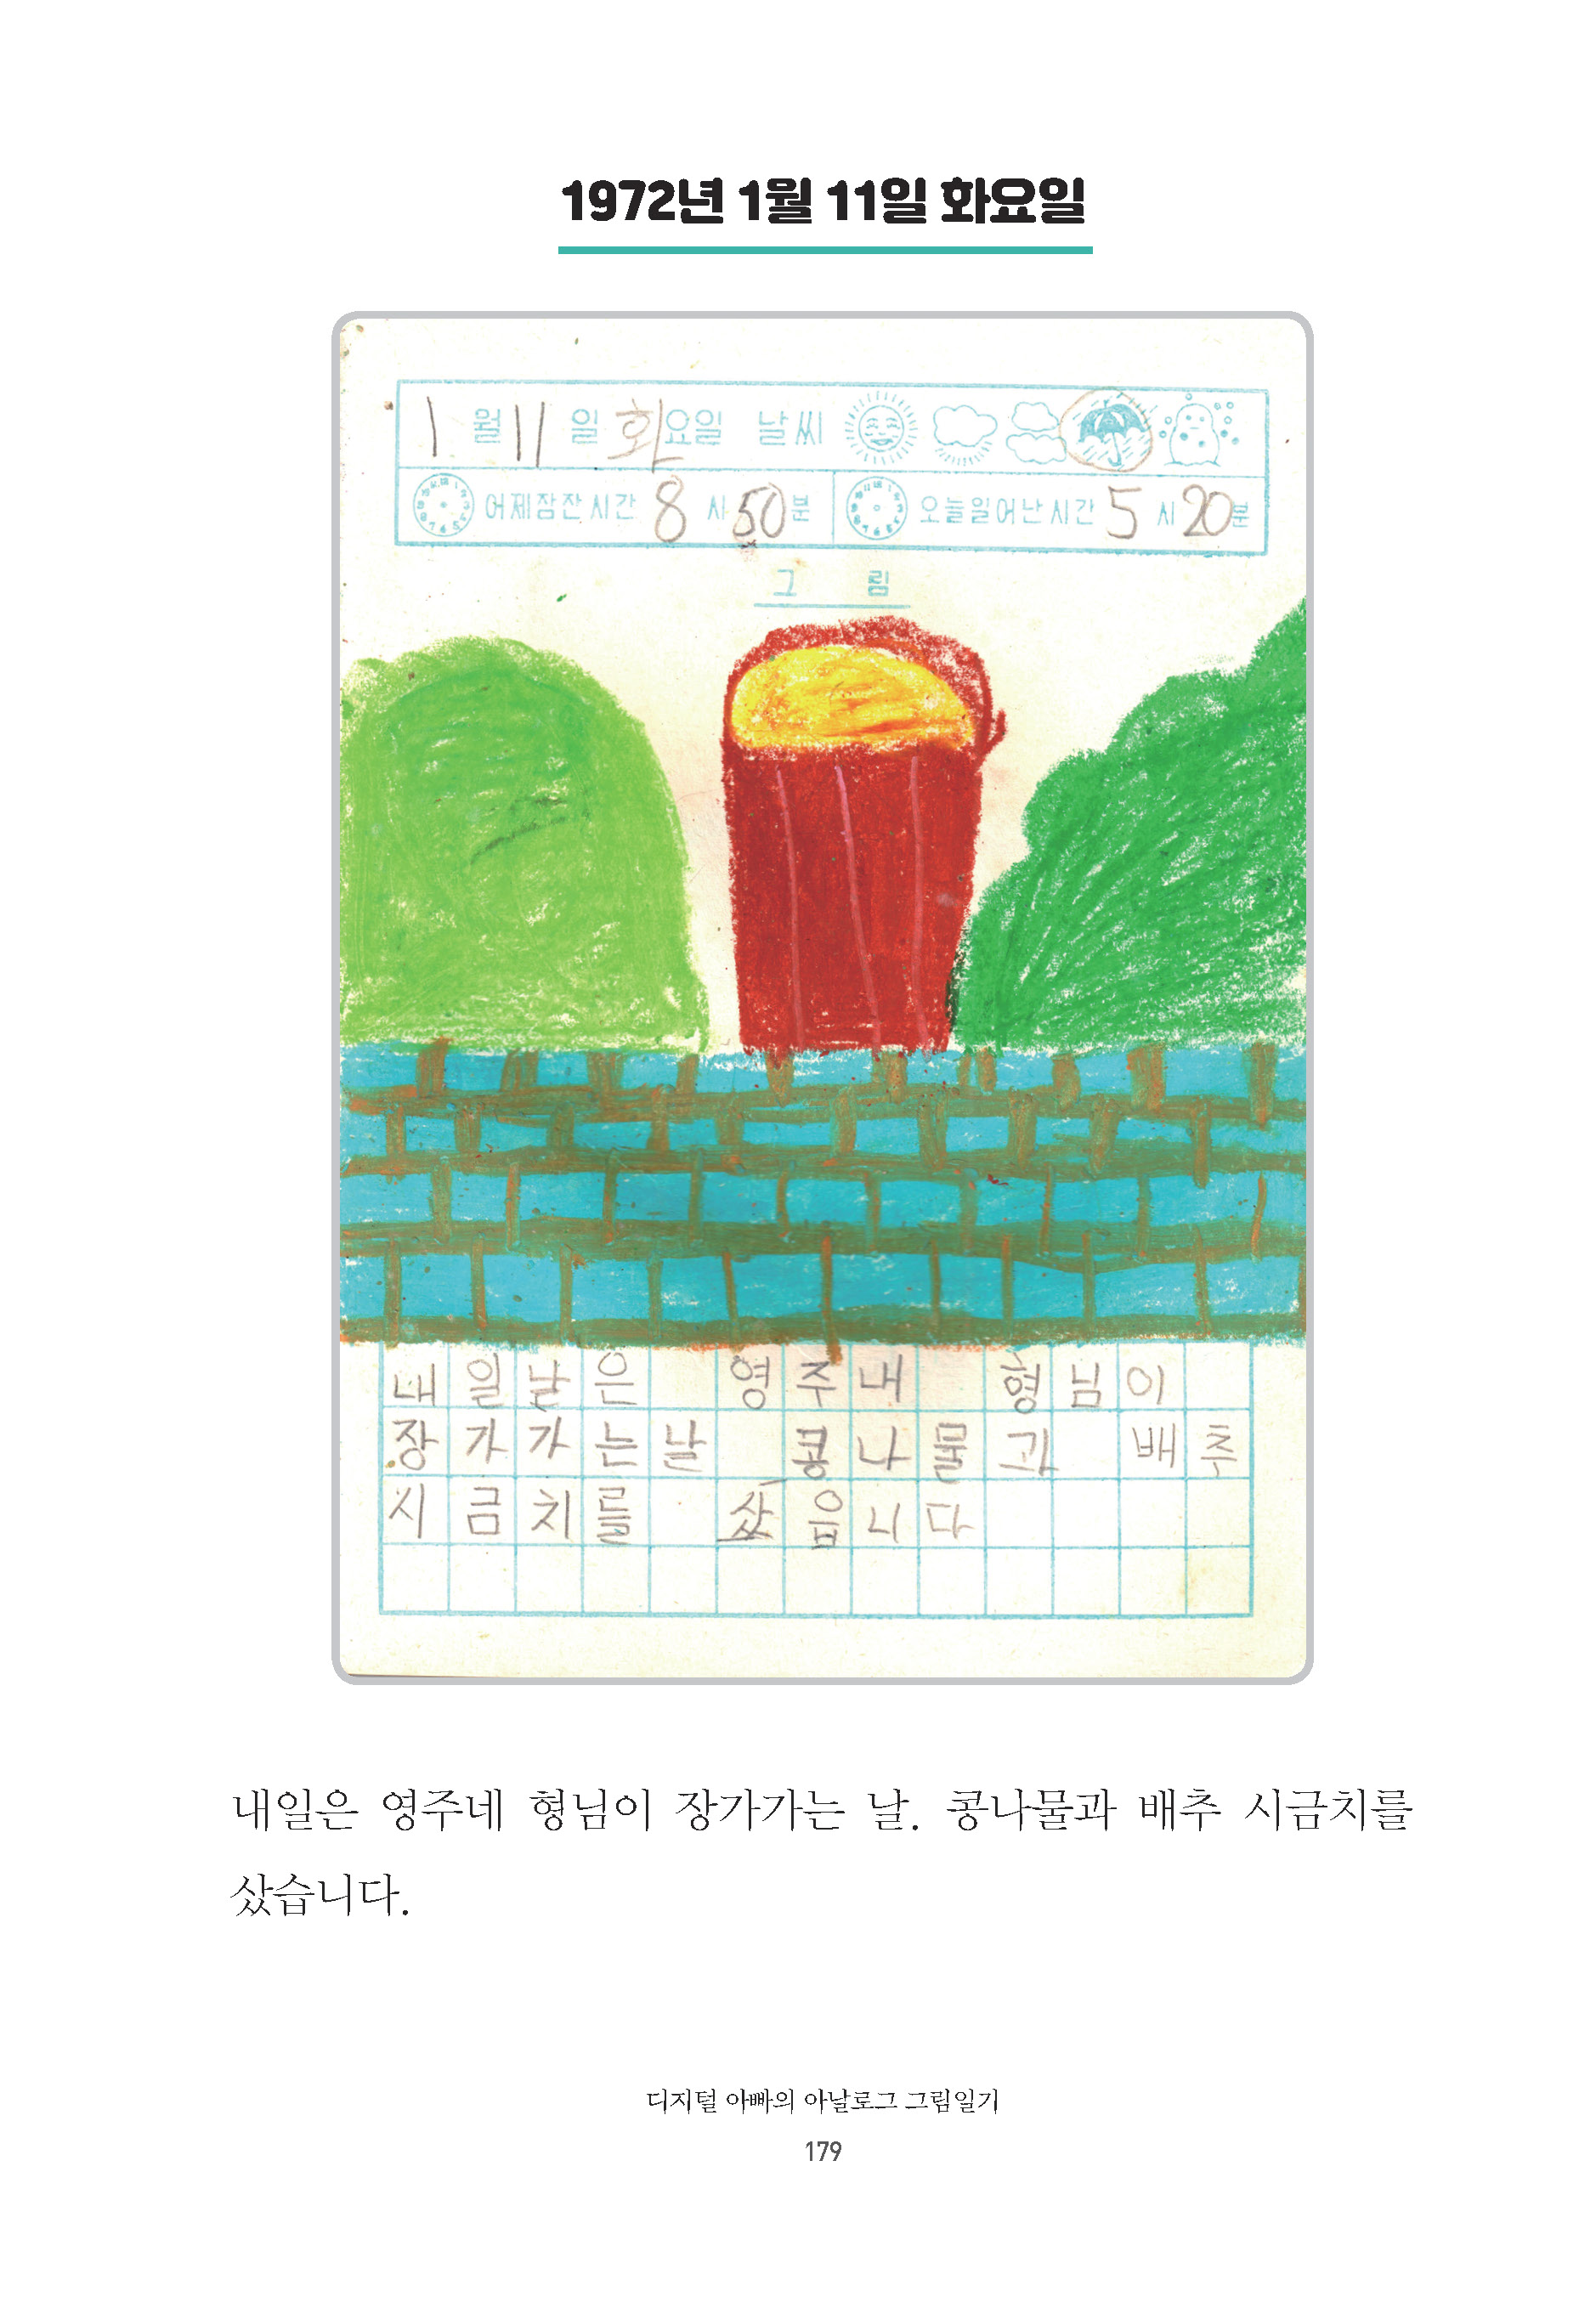 1972년 1월 11일 화요일
1월 11일 화요일 날씨
어제잠잔시간 8시 50분 오늘일어난시간 5시 20분
그림
내일날은 영주내 형님이
장가가는날 콩나물과 배추
시금치를 샀읍니다
내일은 영주네 형님이 장가가는 날. 콩나물과 배추 시금치를
샀습니다.
디지털 아빠의 아날로그 그림일기
179